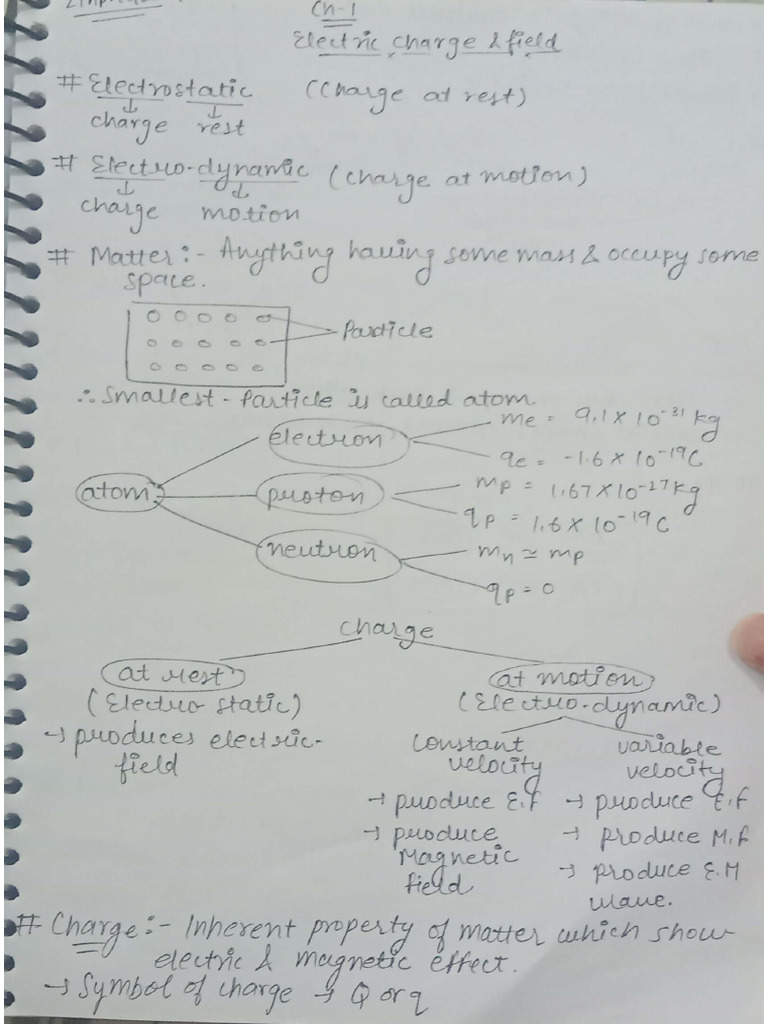 Ch-1
Electric charge & field
# Electrostatic (Charge at rest)
charge rest
# Electro-dynamic (Charge at motion)
charge motion
# Matter:- Anything having some mass & occupy some
space.
Particle
∴ Smallest-Particle is called atom.
me = 9.1 × 10⁻³¹ kg
electron
qe = -1.6 × 10⁻¹⁹C
mp = 1.67×10⁻²⁷kg
atom proton
qp = 1.6 × 10⁻¹⁹C
neutron mn ≃ mp
qp = 0
Charge
at rest at motion
(Electro static) (Electro-dynamic)
→ produces electric- Constant variable
field velocity velocity
→ produce E.f → produce E.f
→ produce → produce M.f
Magnetic → produce E.M
field wave.
# Charge:- Inherent property of matter which show
electric & magnetic effect.
→ Symbol of charge → Q or q